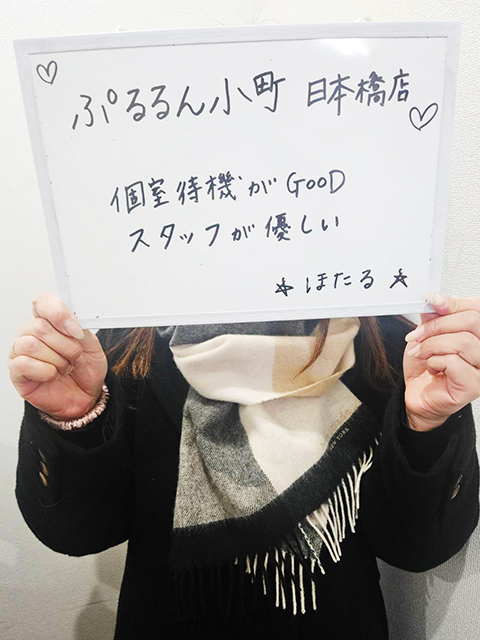 ぷるるん小町 日本橋店
個室待機がGOOD
スタッフが優しい
☆ほたる☆
NEW YORK